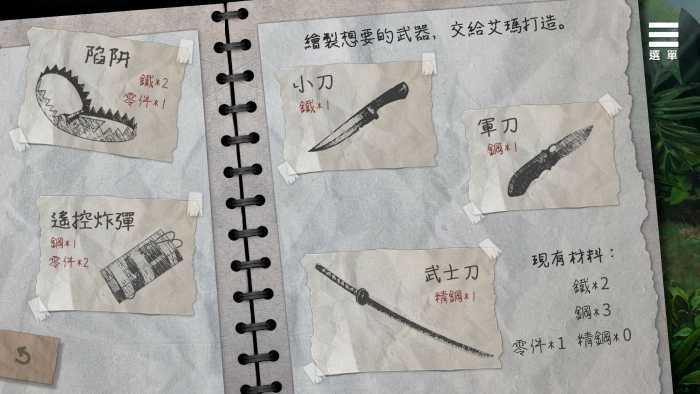 陷阱
鐵*2
零件*1
遙控炸彈
鋼*1
零件*2
繪製想要的武器，交給艾瑪打造。
小刀
鐵*1
軍刀
鋼*1
武士刀
精鋼*1
現有材料：
鐵*2
鋼*3
零件*1 精鋼*0
選單